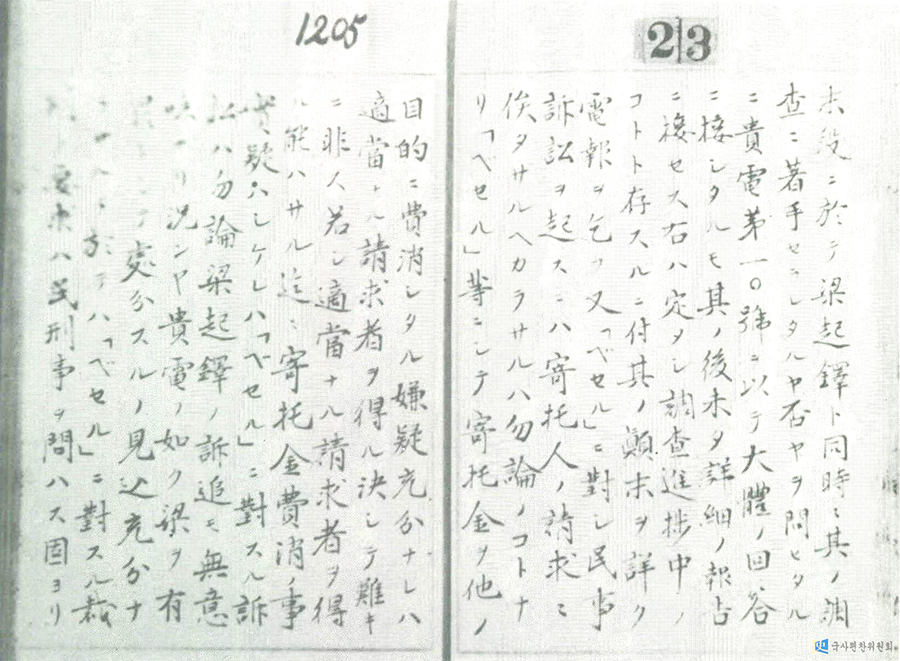 1205
23
末段ニ於テ梁起鐸ト同時ニ其ノ調
査ニ著手セシレタルヤ否ヤヲ問ヒタル
ニ貴電第一〇號ニ以テ大體ノ回答
ニ接シタルモ其ノ後未タ詳細ノ報告
ニ接セス右ハ定メシ調査進捗中ノ
コトト存スルニ付其ノ顛末ヲ詳ク
電報ヲ乞フ又「ベセル」ニ對シ民事
訴訟ヲ起スニハ寄托人ノ請求ニ
俟タサルヘカラサルハ勿論ノコトナ
リ「ベセル」等ニシテ寄托金ヲ他ノ
目的ニ費消シタル嫌疑充分ナレハ
適當ナル請求者ヲ得ル決シテ難キ
ニ非ス若シ適當ナル請求者ヲ得
ル能ハサル迄ニ寄托金費消ノ事
實疑ハシケレハ「ベセル」ニ對スル訴
訟ハ勿論梁起鐸ノ訴追モ無意
味ナリ況ンヤ貴電ノ如ク梁ヲ有
処分スルノ見込充分ナ
於テハ「ベセル」ニ對スル裁
要求ハ民刑事ヲ問ハス固ヨリ
국사편찬위원회